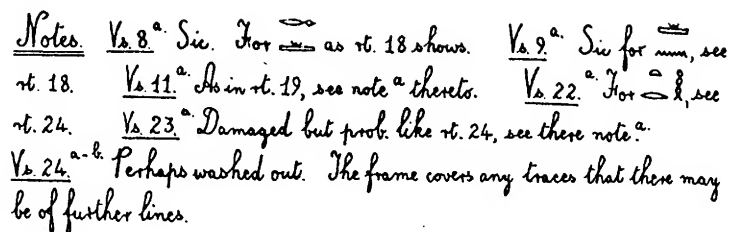 Notes. Vs. 8.ᵃ· Sic. For as rt. 18 shows. Vs. 9.ᵃ· Sic for , see
rt. 18. Vs. 11.ᵃ· As in rt. 19, see note ᵃ thereto. Vs. 22.ᵃ· For , see
rt. 24. Vs. 23.ᵃ· Damaged but prob. like rt. 24, see there note.ᵃ·
Vs. 24.ᵃ⁻ᵇ· Perhaps washed out. The frame covers any traces that there may
be of further lines.